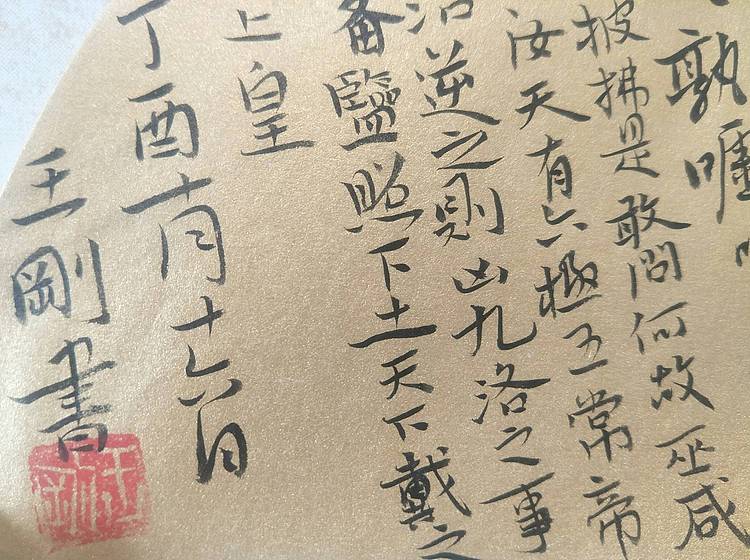 孰噓
披拂是敢問何故巫咸
汝天有六極五常帝
治逆之則凶九洛之事
備鹽照下土天下戴之
上皇
丁酉十月十六日
王剛書